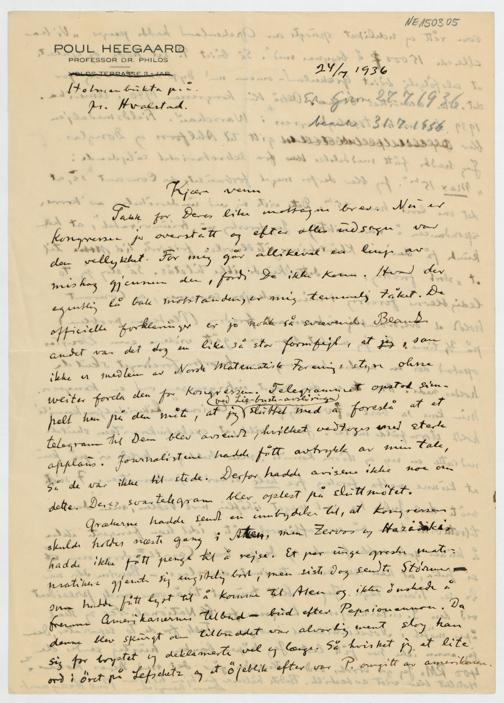 NE150305
POUL HEEGAARD
PROFESSOR DR. PHILOS
24/7 1936
Holmenbukta p.å.
pr. Hvalstad.
27.7.1936.
besv. 31.7.1936
Kjære venn
Takk for Deres like mottagne brev. Nu er
kongressen jo overstått og efter alles udsagn var
den vellykket. For mig går allikevel en linje av
mishag gjennem den, fordi De ikke kom. Hvad der
egentlig lå bak motstanden er mig temmelig tåket. De
officielle forklaringer er jo nokk så svævende. Blandt
andet var det dog en like så stor formfejl, at jeg, som
ikke er medlem av Norsk Matematisk Forenings styre uten
weiter førte den for kongressen. Telegrammet opstod sim-
pelt hen på den måte, at jeg (ved Zig-bush-avslutningen) sluttet med å foreslå at et
telegram til Dem blev avsendt, hvilket vedtoges med sterk
applaus. Journalistene hadde fått avtrykk av min tale,
så de var ikke til stede. Derfor hadde avisene ikke noe om
dette. Deres svartelegram blev oplest på sluttmötet.
Grækerne hadde sendt en innbydelse til, at kongressen
skulde holdes næste gang i Aten, men Zervos og Hazidakis
hadde ikke fått penge til å rejse. Et par unge greske mate-
matikere gjorde sig ængstelig bort, men siste dag sendte Störmer —
som hadde fått lyst til å komme til Aten og ikke önskede å
fremme Amerikanernes tilbud — bud efter Papaioannou. Da
denne blev spurgt om tilbuddet var alvorlig ment slog han
sig for brystet og deklamerte vel og længe. Så hvisket jeg et lite
ord i öret på Lefschetz og et Öjeblik efter var P. omgitt av amerikanere.